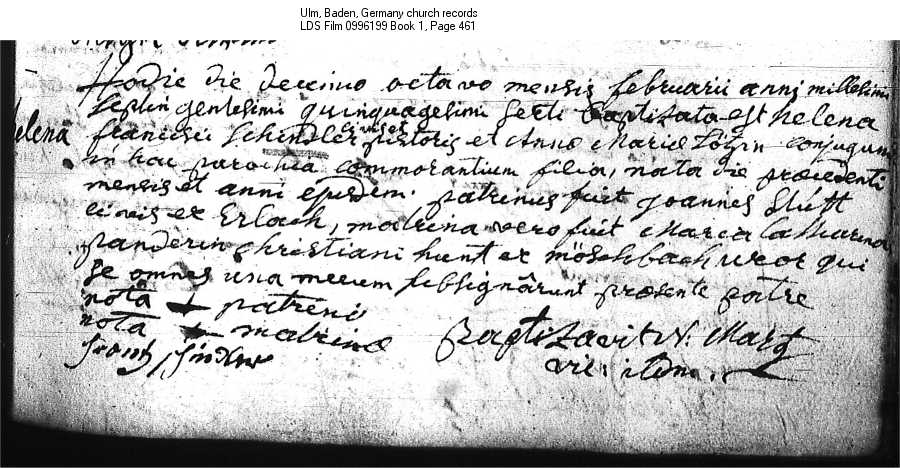 Ulm, Baden, Germany church records
LDS Film 0996199 Book 1, Page 461
Hodie die decimo octavo mensis februarii anni millesimi
septingentesimi quinquagesimi sexti baptizata est helena
helena
francisci Schindler civis et pistoris et Annæ Mariæ conjugum
in hac parochia commorantium filia, nata die præcedenti
mensis et anni ejusdem. patrinus fuit joannes
civis ex Erlach, matrina vero fuit Maria Catharina
panderin christiani hunt ex möschbach uxor qui
se omnes una mecum subsignârunt præsente patre
nota + patrini
nota + matrinæ
frantz
baptizavit N.